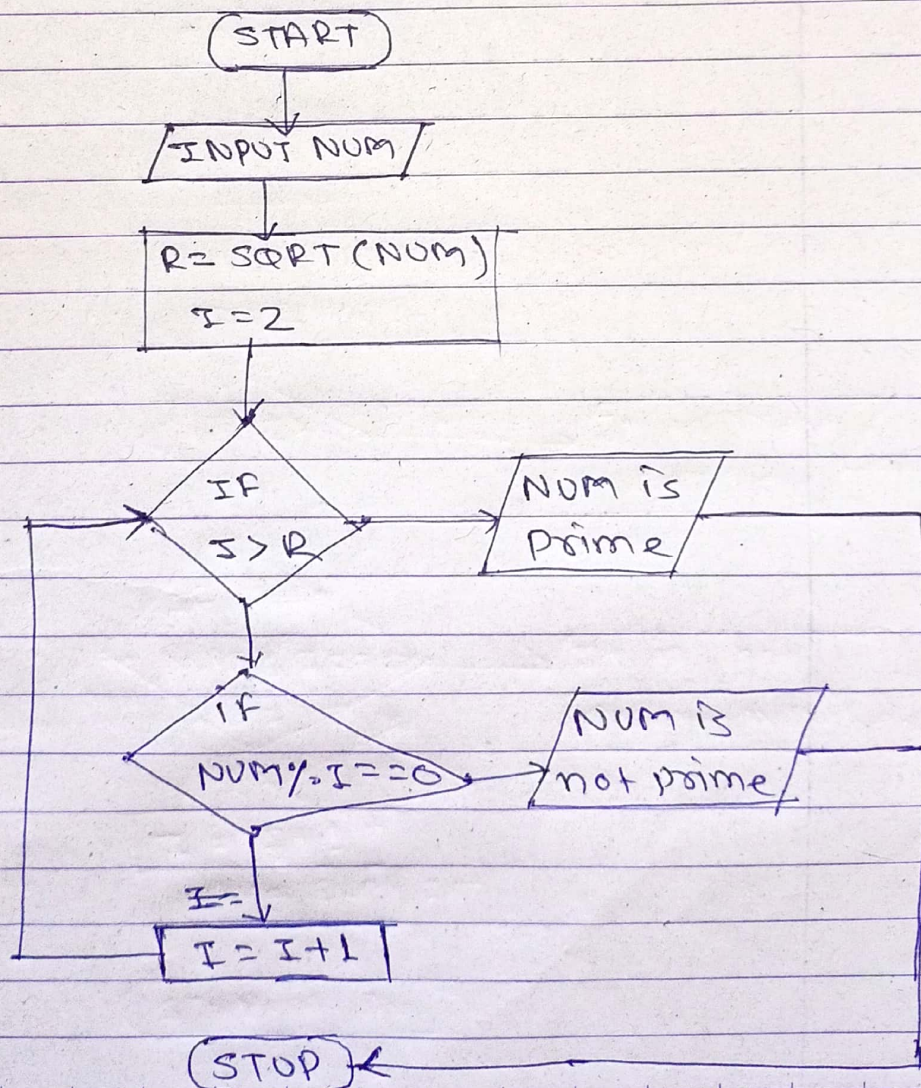 START
INPUT NUM
R= SQRT (NUM)
I=2
IF
I>R
NUM is
prime
if
NUM%I==0
NUM is
not prime
I=
I = I+1
STOP